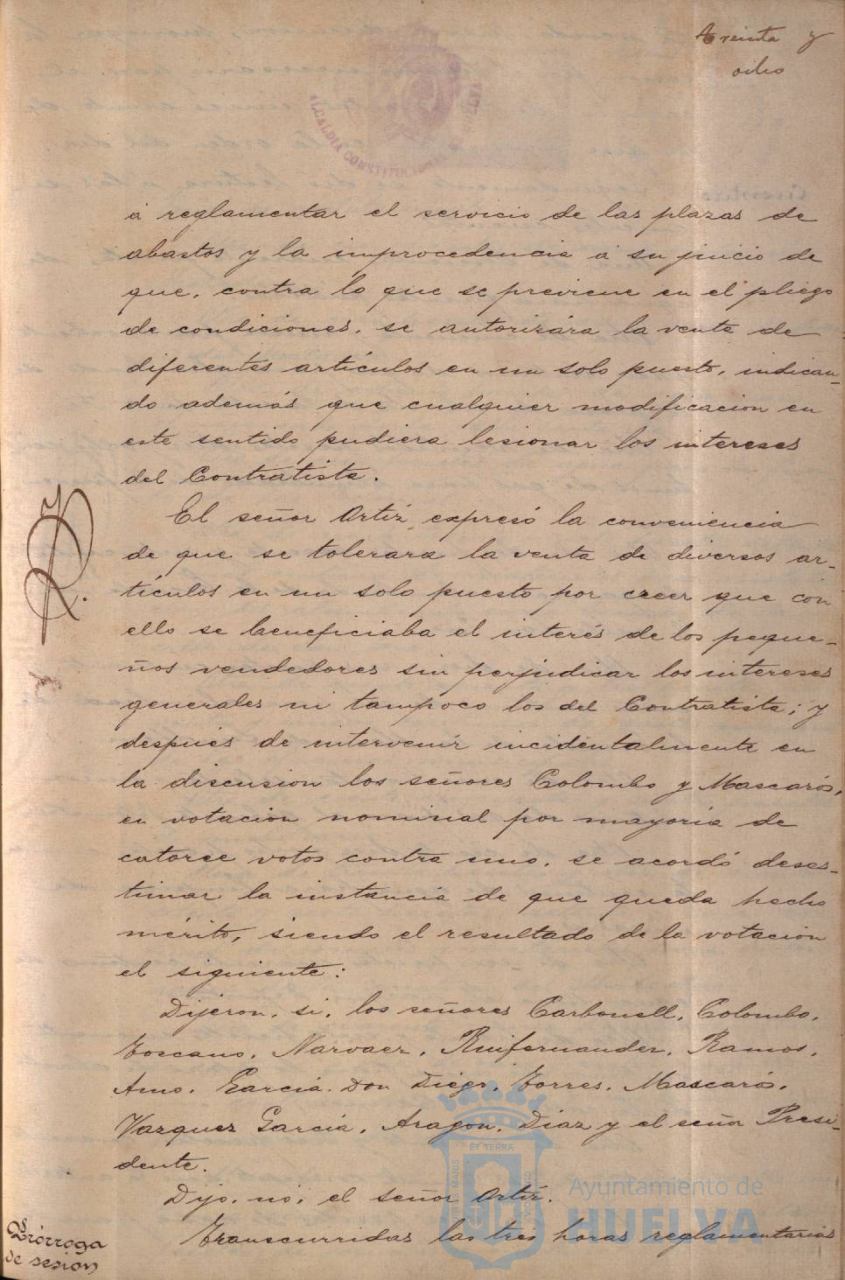 treinta y
ocho
ALCALDIA CONSTITUCIONAL DE HUELVA
á reglamentar el servicio de las plazas de
abastos y la improcedencia á su juicio de
que, contra lo que se previene en el pliego
de condiciones, se autorizára la venta de
diferentes artículos en un solo puesto, indican-
do además que cualquier modificacion en
este sentido pudiera lesionar los intereses
del Contratista.
El señor Ortiz, expresó la conveniencia
de que se tolerara la venta de diversos ar-
tículos en un solo puesto por creer que con
ello se beneficiaba el interés de los peque-
ños vendedores sin perjudicar los intereses
generales ni tampoco los del Contratista; y
después de intervenir incidentalmente en
la discusion los señores Colombo y Mascarós,
en votacion nominal por mayoría de
catorce votos contra uno, se acordó deses-
timar la instancia de que queda hecho
mérito, siendo el resultado de la votacion
el siguiente:
Dijeron, si, los señores Carbonell, Colombo,
Toscano, Narvaez, Ruifernandez, Ramos,
Amo, García Don Diego, Torres, Mascarós,
Vazquez García, Aragon, Diaz y el señor Presi-
dente.
Dijo, nó, el señor Ortiz.
Prórroga
de sesion
Transcurridas las tres horas reglamentarias
Ayuntamiento de
HUELVA